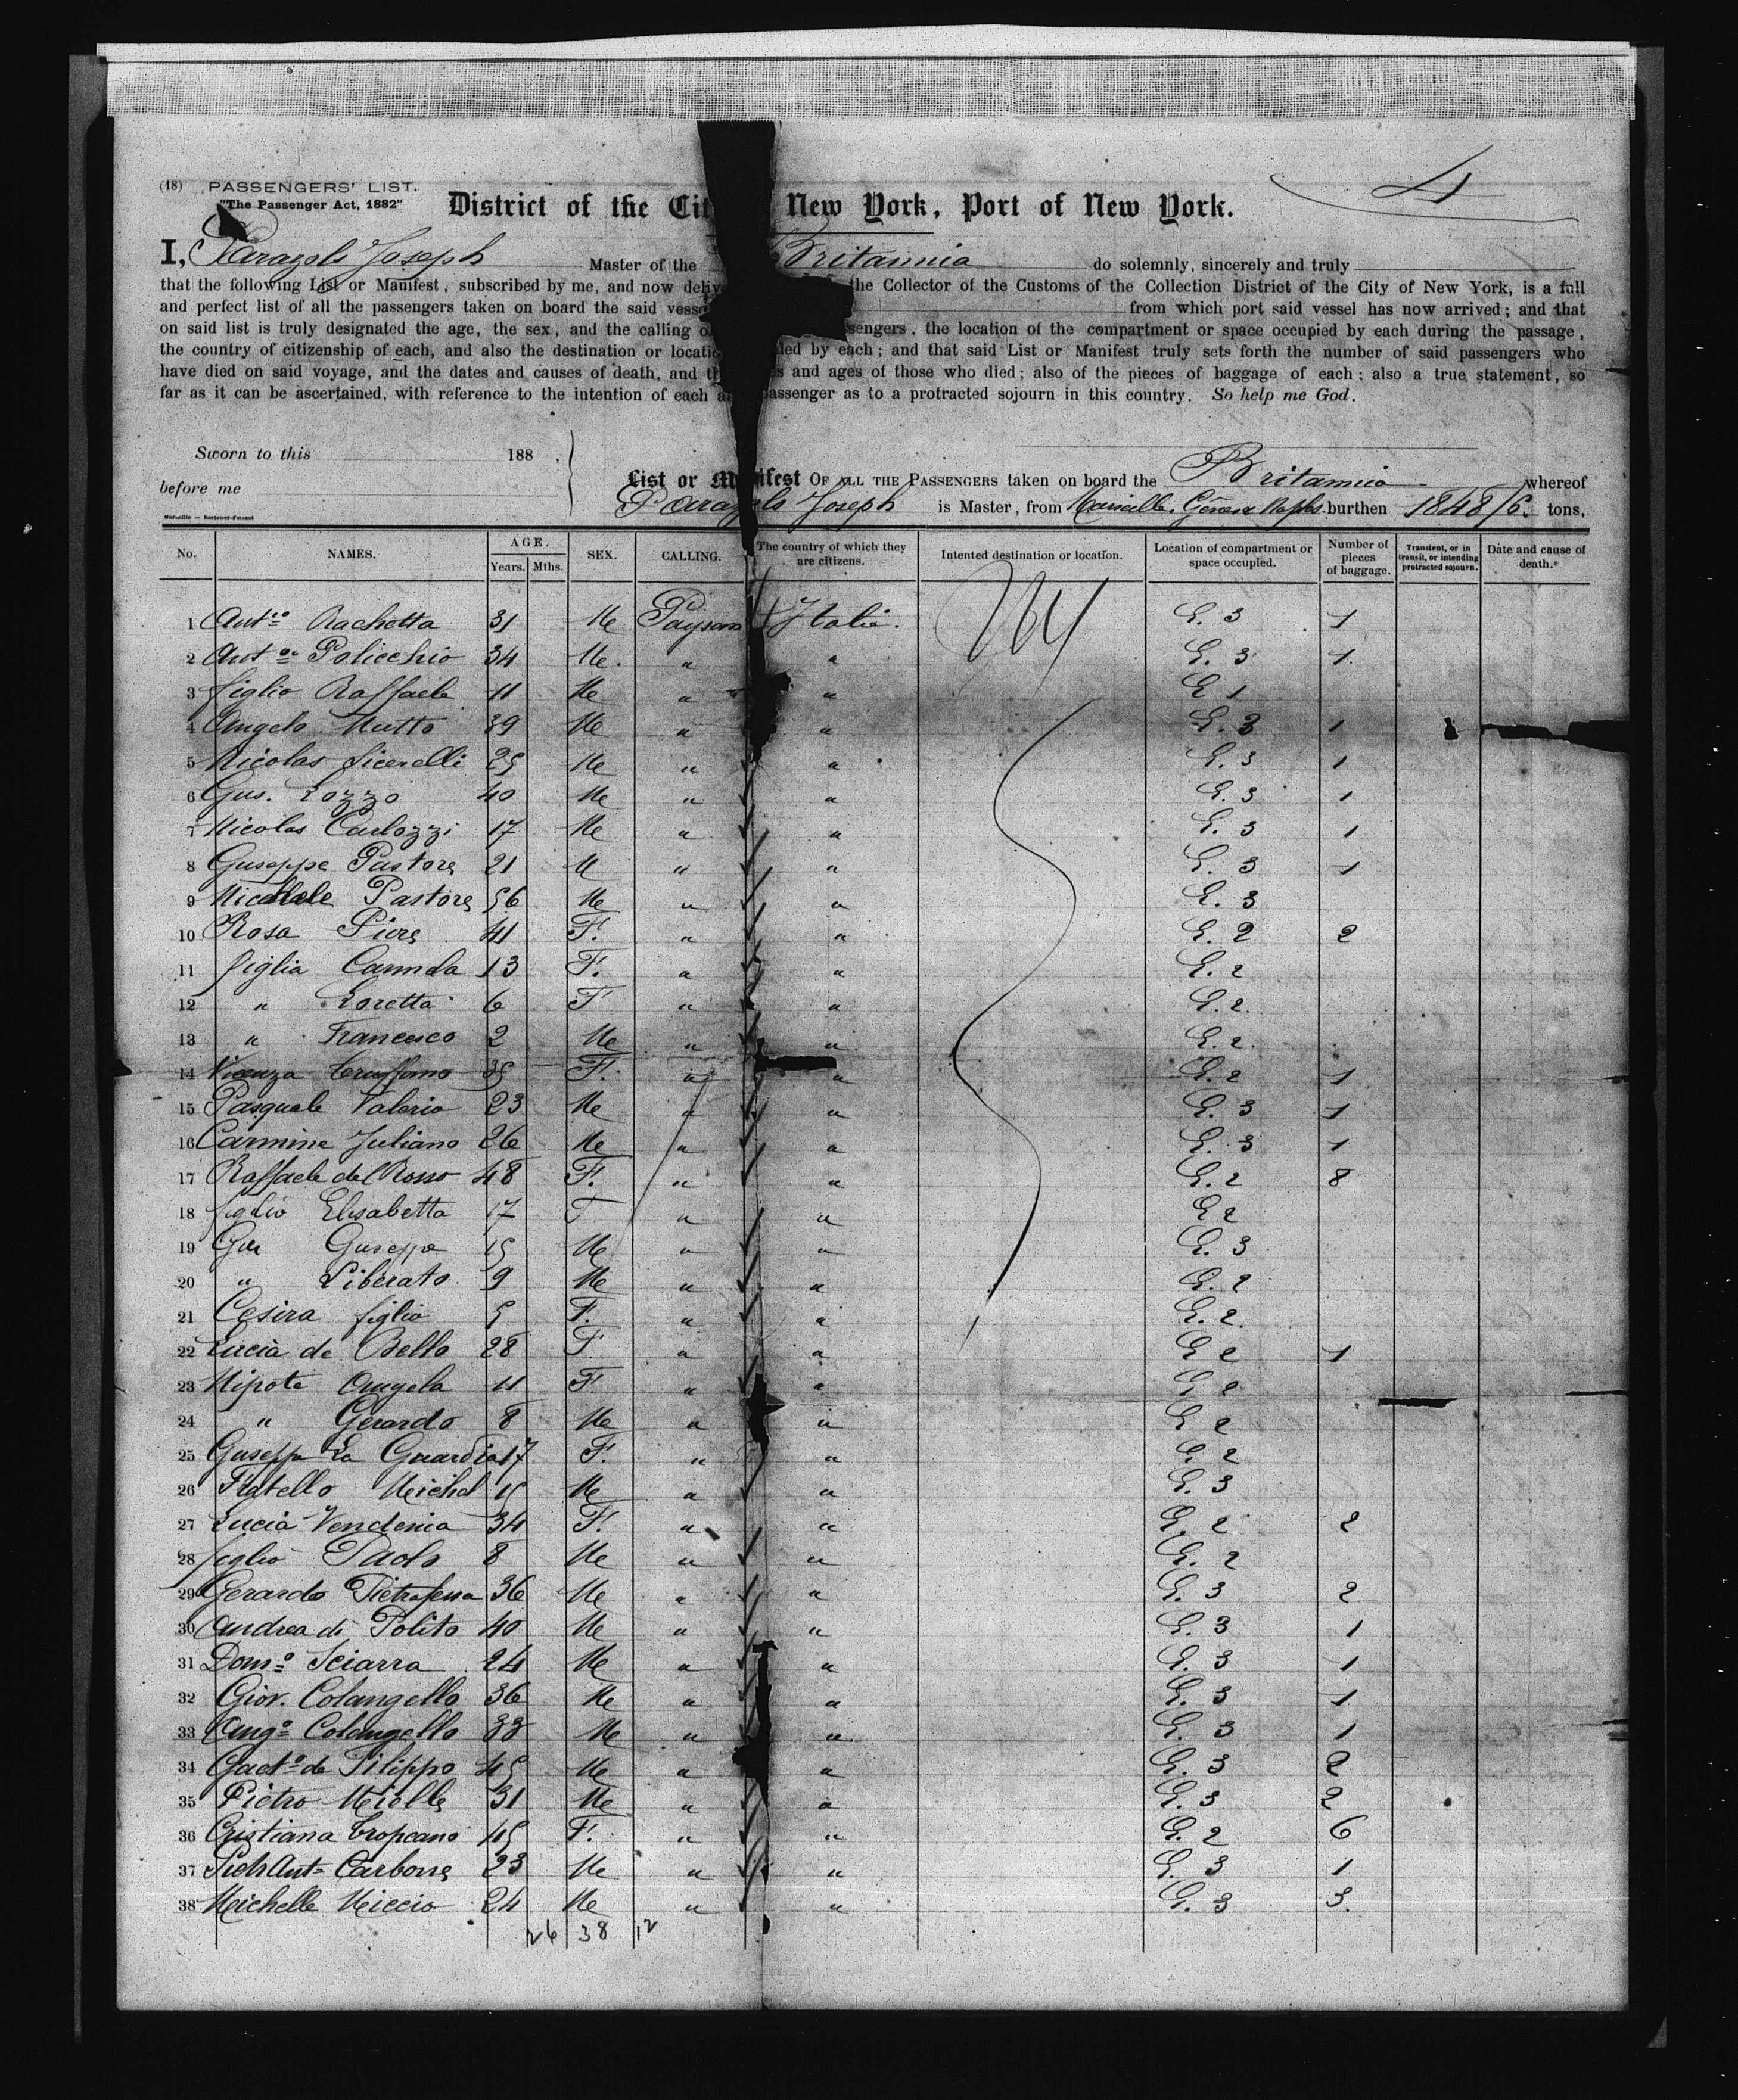 4
(18) PASSENGERS' LIST.
"The Passenger Act, 1882"
District of the Cit New York, Port of New York.
I, Parazols Joseph Master of the Britannia do solemnly, sincerely and truly
that the following List or Manifest, subscribed by me, and now delive the Collector of the Customs of the Collection District of the City of New York, is a full
and perfect list of all the passengers taken on board the said vesse from which port said vessel has now arrived; and that
on said list is truly designated the age, the sex, and the calling o sengers, the location of the compartment or space occupied by each during the passage,
the country of citizenship of each, and also the destination or locatio ded by each; and that said List or Manifest truly sets forth the number of said passengers who
have died on said voyage, and the dates and causes of death, and th s and ages of those who died; also of the pieces of baggage of each; also a true statement, so
far as it can be ascertained, with reference to the intention of each a passenger as to a protracted sojourn in this country. So help me God.
Sworn to this 188 ,
before me
List or Manifest OF ALL THE PASSENGERS taken on board the Britannia whereof
Parazols Joseph is Master, from Marseille, Gênes & Naples burthen 1848/6. tons,
No. NAMES. AGE. Years. Mths. SEX. CALLING. The country of which they are citizens. Intented destination or location. Location of compartment or space occupied. Number of pieces of baggage. Transient, or in transit, or intending protracted sojourn. Date and cause of death.
1 Anto Rachetta 31 Me Paysan Italie. E. 3 1
2 Anto Policchio 34 Me. " " E. 3 1.
3 figlio Raffaele 11 Me " " E 1
4 Angelo Mutto 39 Me " " E. 3 1
5 Nicolas Sicerelli 25 Me " " E. 3 1
6 Gus. Lozzo 40 Me " " E. 3 1
7 Nicolas Carlozzi 17 Me " " E. 3 1
8 Guseppe Pastore 21 M " " E. 3 1
9 Pastore 56 Me " " E. 3
10 Rosa Piere 41 F. " " E. 2 2
11 figlia Carmela 13 F. " " E. 2
12 " Loretta 6 F " " E. 2.
13 " Francesco 2 Me " " E. 2.
14 Vicenza 35 F. " " E. 2 1
15 Pasquale Valerio 23 Me " " E. 3 1
16 Carmine Juliano 26 Me " " E. 3 1
17 Raffaele del Rosso 48 F. " " E. 2 8
18 figlio Elisabetta 17 F " " E 2
19 Guseppe 15 Me " " E. 3
20 " Liberato 9 Me " " E. 2
21 Cesira figlia 5 F. " " E. 2.
22 Lucia de Bello 28 F " " E 2 1
23 Nipote Angela 11 F " " E 2
24 " Gerardo 8 Me " " E 2
25 Guseppa La Guardia 17 F. " " E 2
26 Fratello Michel 15 Me " " E. 3
27 Lucia Vendenia 34 F. " " E. 2 2
28 figlio Paolo 8 Me " " E. 2
29 Gerardo Pietrafesa 36 Me " " E. 3 2
30 Andrea di Polito 40 Me " " E. 3 1
31 Domo Sciarra 24 Me " " E. 3 1
32 Giov. Colangello 36 Me " " E. 3 1
33 Ango Colangello 38 Me " " E. 3 1
34 Gaeto de Filippo 45 Me " " E. 3 2
35 Pietro Mielle 31 Me " " E. 3 2
36 Cristiana Tropeano 45 F. " " E. 2 6
37 Carbone 23 Me " " E. 3 1
38 Michelle Miccio 24 Me " " E. 3 3.
26 38 12